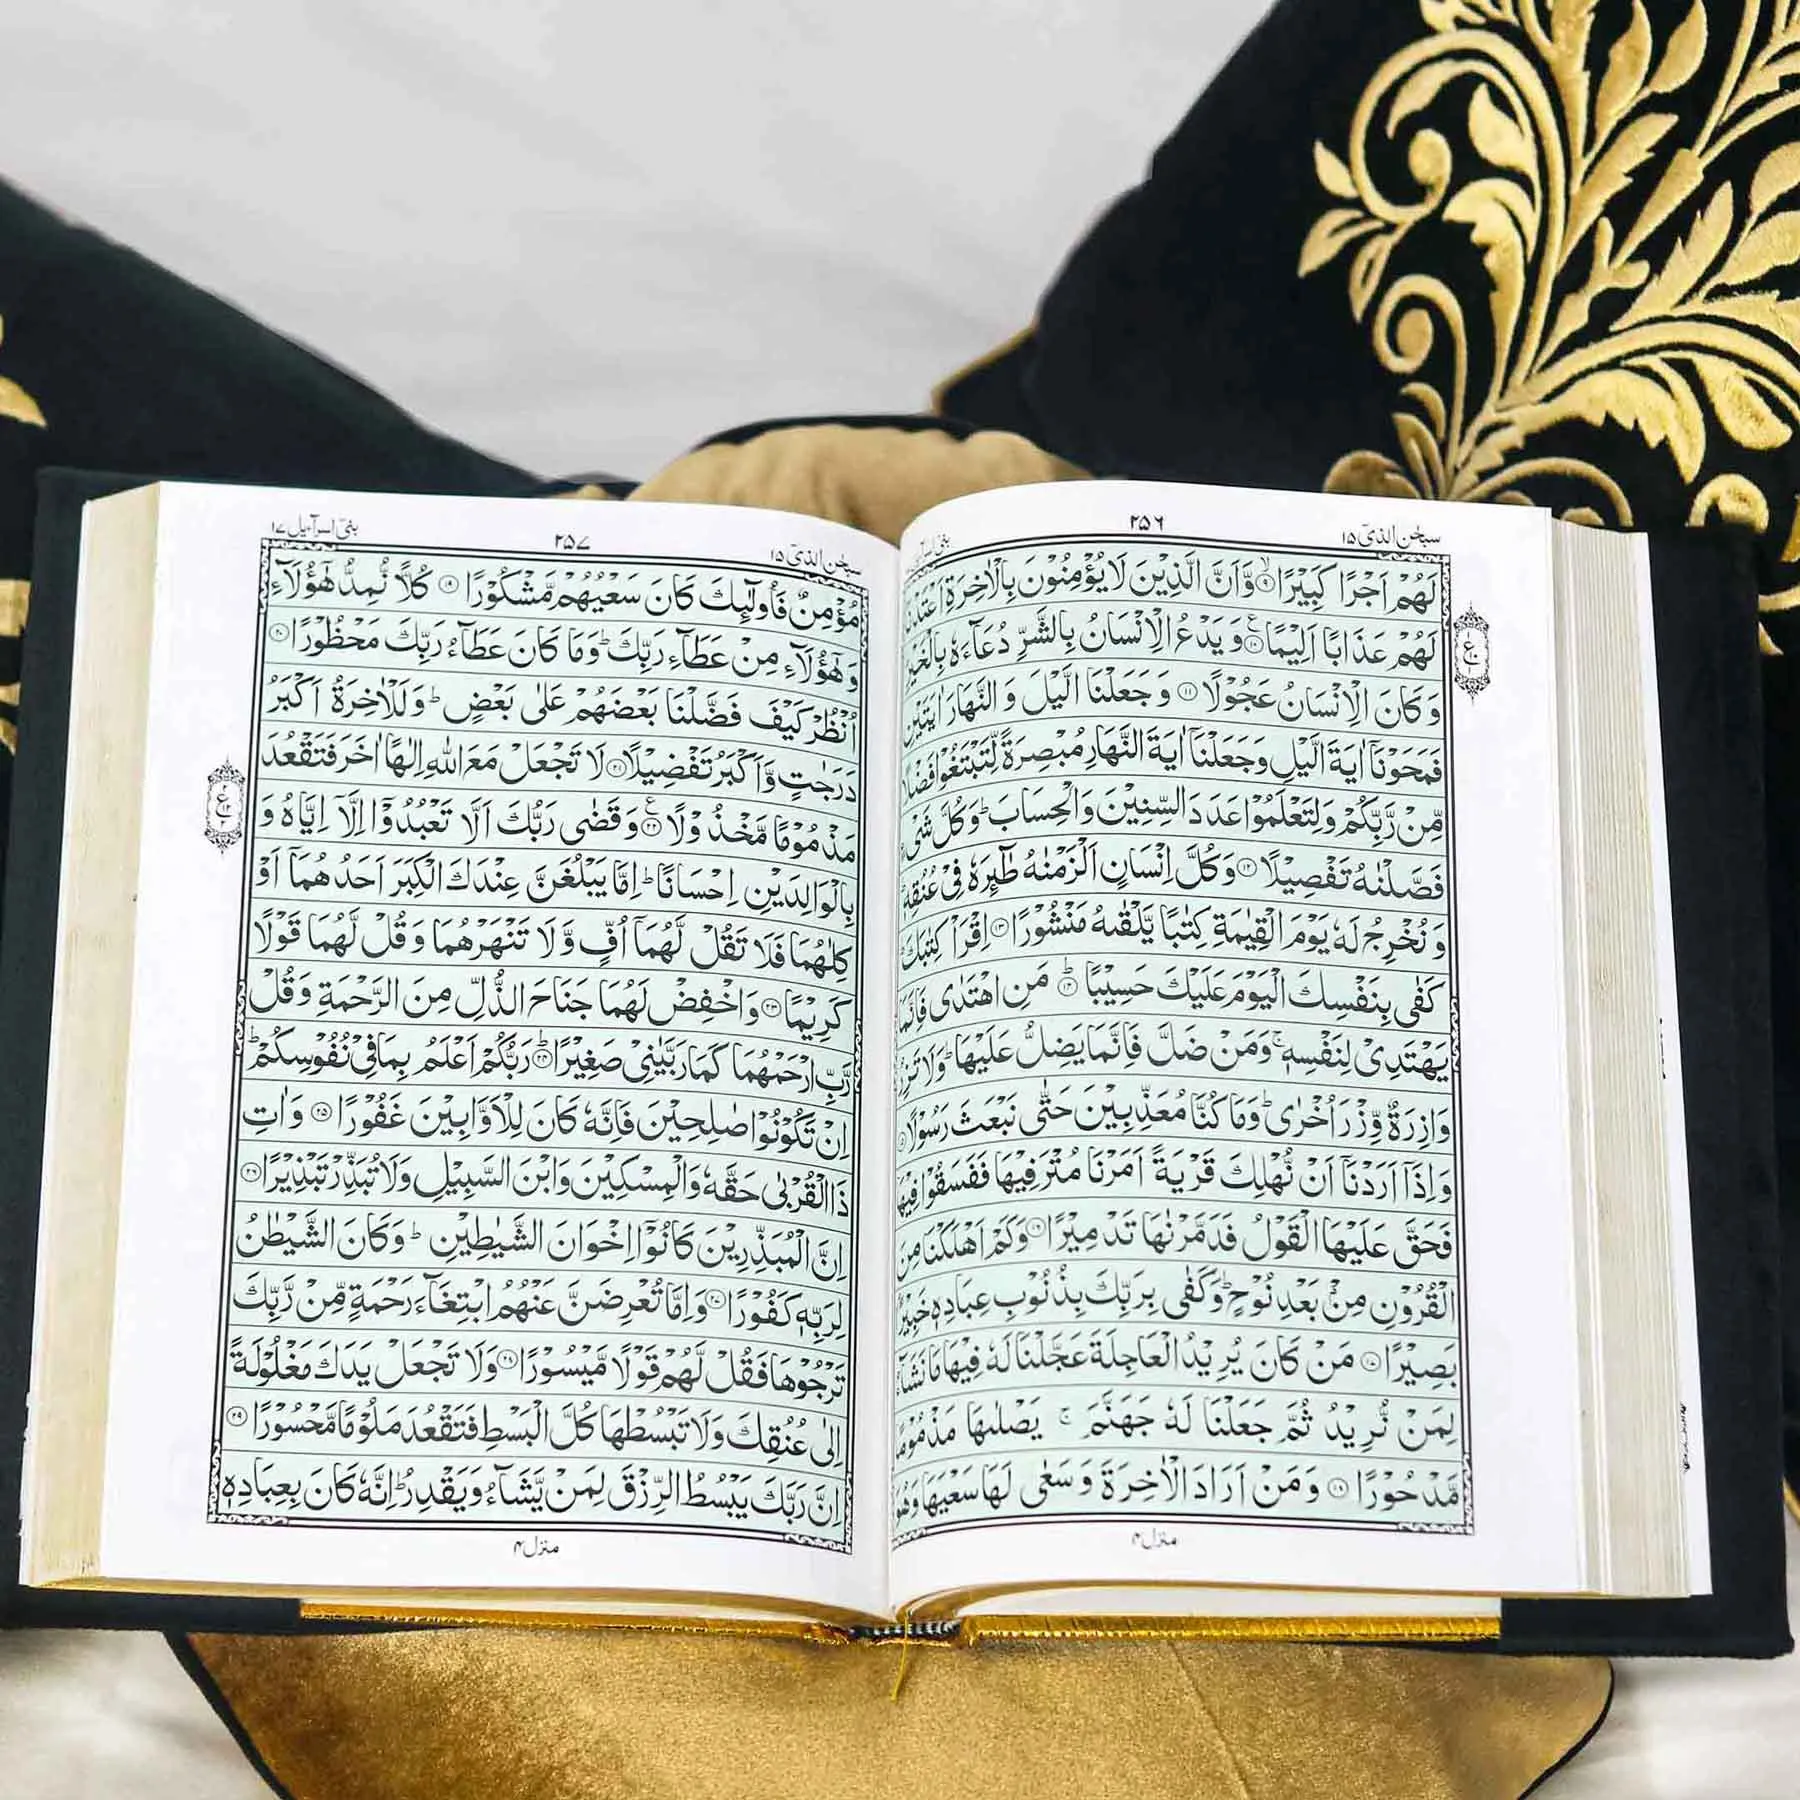 سبحٰن الذیٓ ۱۵
۲۵۶
بنیٓ اسرآءیل
لَهُمْ اَجْرًا كَبِیْرًا ۙ۹ وَّاَنَّ الَّذِیْنَ لَا یُؤْمِنُوْنَ بِالْاٰخِرَةِ اَعْتَدْنَا
لَهُمْ عَذَابًا اَلِیْمًا ۠۱۰ وَیَدْعُ الْاِنْسَانُ بِالشَّرِّ دُعَآءَهٗ بِالْخَیْرِ
وَكَانَ الْاِنْسَانُ عَجُوْلًا ۱۱ وَجَعَلْنَا الَّیْلَ وَالنَّهَارَ اٰیَتَیْنِ
فَمَحَوْنَاۤ اٰیَةَ الَّیْلِ وَجَعَلْنَاۤ اٰیَةَ النَّهَارِ مُبْصِرَةً لِّتَبْتَغُوْا فَضْلًا
مِّنْ رَّبِّكُمْ وَلِتَعْلَمُوْا عَدَدَ السِّنِیْنَ وَالْحِسَابَ ؕ وَكُلَّ شَیْءٍ
فَصَّلْنٰهُ تَفْصِیْلًا ۱۲ وَكُلَّ اِنْسَانٍ اَلْزَمْنٰهُ طٰٓئِرَهٗ فِیْ عُنُقِهٖ ؕ
وَنُخْرِجُ لَهٗ یَوْمَ الْقِیٰمَةِ كِتٰبًا یَّلْقٰىهُ مَنْشُوْرًا ۱۳ اِقْرَاْ كِتٰبَكَ
كَفٰی بِنَفْسِكَ الْیَوْمَ عَلَیْكَ حَسِیْبًا ؕ۱۴ مَنِ اهْتَدٰی فَاِنَّمَا
یَهْتَدِیْ لِنَفْسِهٖ ۚ وَمَنْ ضَلَّ فَاِنَّمَا یَضِلُّ عَلَیْهَا ؕ وَلَا تَزِرُ
وَازِرَةٌ وِّزْرَ اُخْرٰی ؕ وَمَا كُنَّا مُعَذِّبِیْنَ حَتّٰی نَبْعَثَ رَسُوْلًا ۱۵
وَاِذَاۤ اَرَدْنَاۤ اَنْ نُّهْلِكَ قَرْیَةً اَمَرْنَا مُتْرَفِیْهَا فَفَسَقُوْا فِیْهَا
فَحَقَّ عَلَیْهَا الْقَوْلُ فَدَمَّرْنٰهَا تَدْمِیْرًا ۱۶ وَكَمْ اَهْلَكْنَا مِنَ
الْقُرُوْنِ مِنْۢ بَعْدِ نُوْحٍ ؕ وَكَفٰی بِرَبِّكَ بِذُنُوْبِ عِبَادِهٖ خَبِیْرًۢا
بَصِیْرًا ۱۷ مَنْ كَانَ یُرِیْدُ الْعَاجِلَةَ عَجَّلْنَا لَهٗ فِیْهَا مَا نَشَآءُ
لِمَنْ نُّرِیْدُ ثُمَّ جَعَلْنَا لَهٗ جَهَنَّمَ ۚ یَصْلٰىهَا مَذْمُوْمًا
مَّدْحُوْرًا ۱۸ وَمَنْ اَرَادَ الْاٰخِرَةَ وَسَعٰی لَهَا سَعْیَهَا وَهُوَ
منزل ۴
سبحٰن الذیٓ ۱۵
۲۵۷
بنیٓ اسرآءیل ۱۷
مُؤْمِنٌ فَاُولٰٓئِكَ كَانَ سَعْیُهُمْ مَّشْكُوْرًا ۱۹ كُلًّا نُّمِدُّ هٰۤؤُلَآءِ
وَهٰۤؤُلَآءِ مِنْ عَطَآءِ رَبِّكَ ؕ وَمَا كَانَ عَطَآءُ رَبِّكَ مَحْظُوْرًا ۲۰
اُنْظُرْ كَیْفَ فَضَّلْنَا بَعْضَهُمْ عَلٰی بَعْضٍ ؕ وَلَلْاٰخِرَةُ اَكْبَرُ
دَرَجٰتٍ وَّاَكْبَرُ تَفْضِیْلًا ۲۱ لَا تَجْعَلْ مَعَ اللّٰهِ اِلٰهًا اٰخَرَ فَتَقْعُدَ
مَذْمُوْمًا مَّخْذُوْلًا ۠۲۲ وَقَضٰی رَبُّكَ اَلَّا تَعْبُدُوْۤا اِلَّاۤ اِیَّاهُ وَ
بِالْوَالِدَیْنِ اِحْسَانًا ؕ اِمَّا یَبْلُغَنَّ عِنْدَكَ الْكِبَرَ اَحَدُهُمَاۤ اَوْ
كِلٰهُمَا فَلَا تَقُلْ لَّهُمَاۤ اُفٍّ وَّلَا تَنْهَرْهُمَا وَقُلْ لَّهُمَا قَوْلًا
كَرِیْمًا ۲۳ وَاخْفِضْ لَهُمَا جَنَاحَ الذُّلِّ مِنَ الرَّحْمَةِ وَقُلْ
رَّبِّ ارْحَمْهُمَا كَمَا رَبَّیٰنِیْ صَغِیْرًا ؕ۲۴ رَبُّكُمْ اَعْلَمُ بِمَا فِیْ نُفُوْسِكُمْ ؕ
اِنْ تَكُوْنُوْا صٰلِحِیْنَ فَاِنَّهٗ كَانَ لِلْاَوَّابِیْنَ غَفُوْرًا ۲۵ وَاٰتِ
ذَا الْقُرْبٰی حَقَّهٗ وَالْمِسْكِیْنَ وَابْنَ السَّبِیْلِ وَلَا تُبَذِّرْ تَبْذِیْرًا ۲۶
اِنَّ الْمُبَذِّرِیْنَ كَانُوْۤا اِخْوَانَ الشَّیٰطِیْنِ ؕ وَكَانَ الشَّیْطٰنُ
لِرَبِّهٖ كَفُوْرًا ۲۷ وَاِمَّا تُعْرِضَنَّ عَنْهُمُ ابْتِغَآءَ رَحْمَةٍ مِّنْ رَّبِّكَ
تَرْجُوْهَا فَقُلْ لَّهُمْ قَوْلًا مَّیْسُوْرًا ۲۸ وَلَا تَجْعَلْ یَدَكَ مَغْلُوْلَةً
اِلٰی عُنُقِكَ وَلَا تَبْسُطْهَا كُلَّ الْبَسْطِ فَتَقْعُدَ مَلُوْمًا مَّحْسُوْرًا ۲۹
اِنَّ رَبَّكَ یَبْسُطُ الرِّزْقَ لِمَنْ یَّشَآءُ وَیَقْدِرُ ؕ اِنَّهٗ كَانَ بِعِبَادِهٖ
منزل ۴